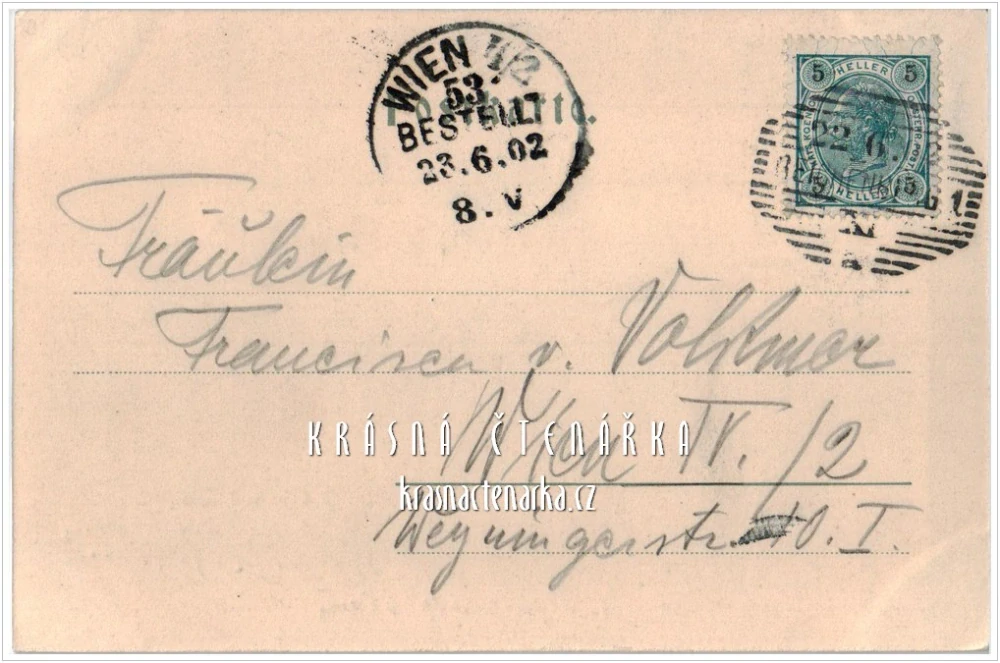 WIEN 4/2
53
BESTELLT
23.6.02
8.V
Postkarte.
5 HELLER 5
5 HELLER 5
22.6.
Fräulein
Francisca v. Volkmar
Wien IV. /2
KRÁSNÁ ČTENÁŘKA
krasnactenarka.cz
Weyringerstr. 10. I.